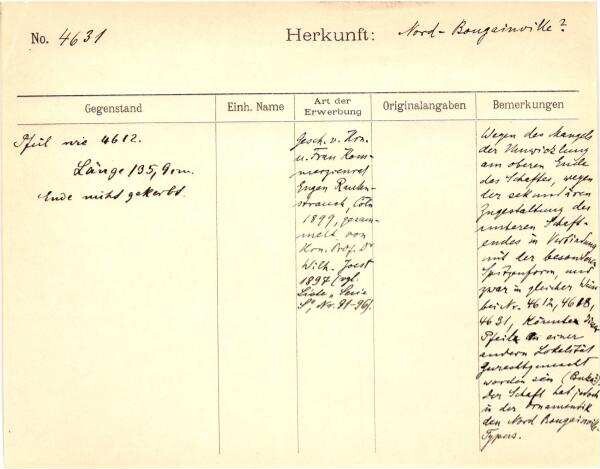 No. 4631
Herkunft: Nord-Bougainville?
Gegenstand
Einh. Name
Art der Erwerbung
Originalangaben
Bemerkungen
Pfeil wie 4612.
Länge 135,9 cm.
Ende nicht gekerbt.
Gesch. v. Hrn.
u. Frau Kom-
merzienrat
Eugen Rauten-
strauch, Cöln
1899, gesam-
melt von
Hrn. Prof. Dr
Wilh. Joest
1897 (vgl.
Liste, Serie
S, Nr. 91-96).
Wegen des Mangels
der Umwicklung
am oberen Ende
des Schaftes, wegen
der sekundären
Zugestaltung des
unteren Schaft-
endes in Verbindung
mit der besonderen
Spitzenform, und
zwar in gleicher Weise
bei Nr. 4612, 4618,
4631, könnten diese
Pfeile an einer
andern Lokalität
zurechtgemacht
worden sein
Der Schaft hat jedoch
in der Ornamentik
den Nord Bougainville
Typus.